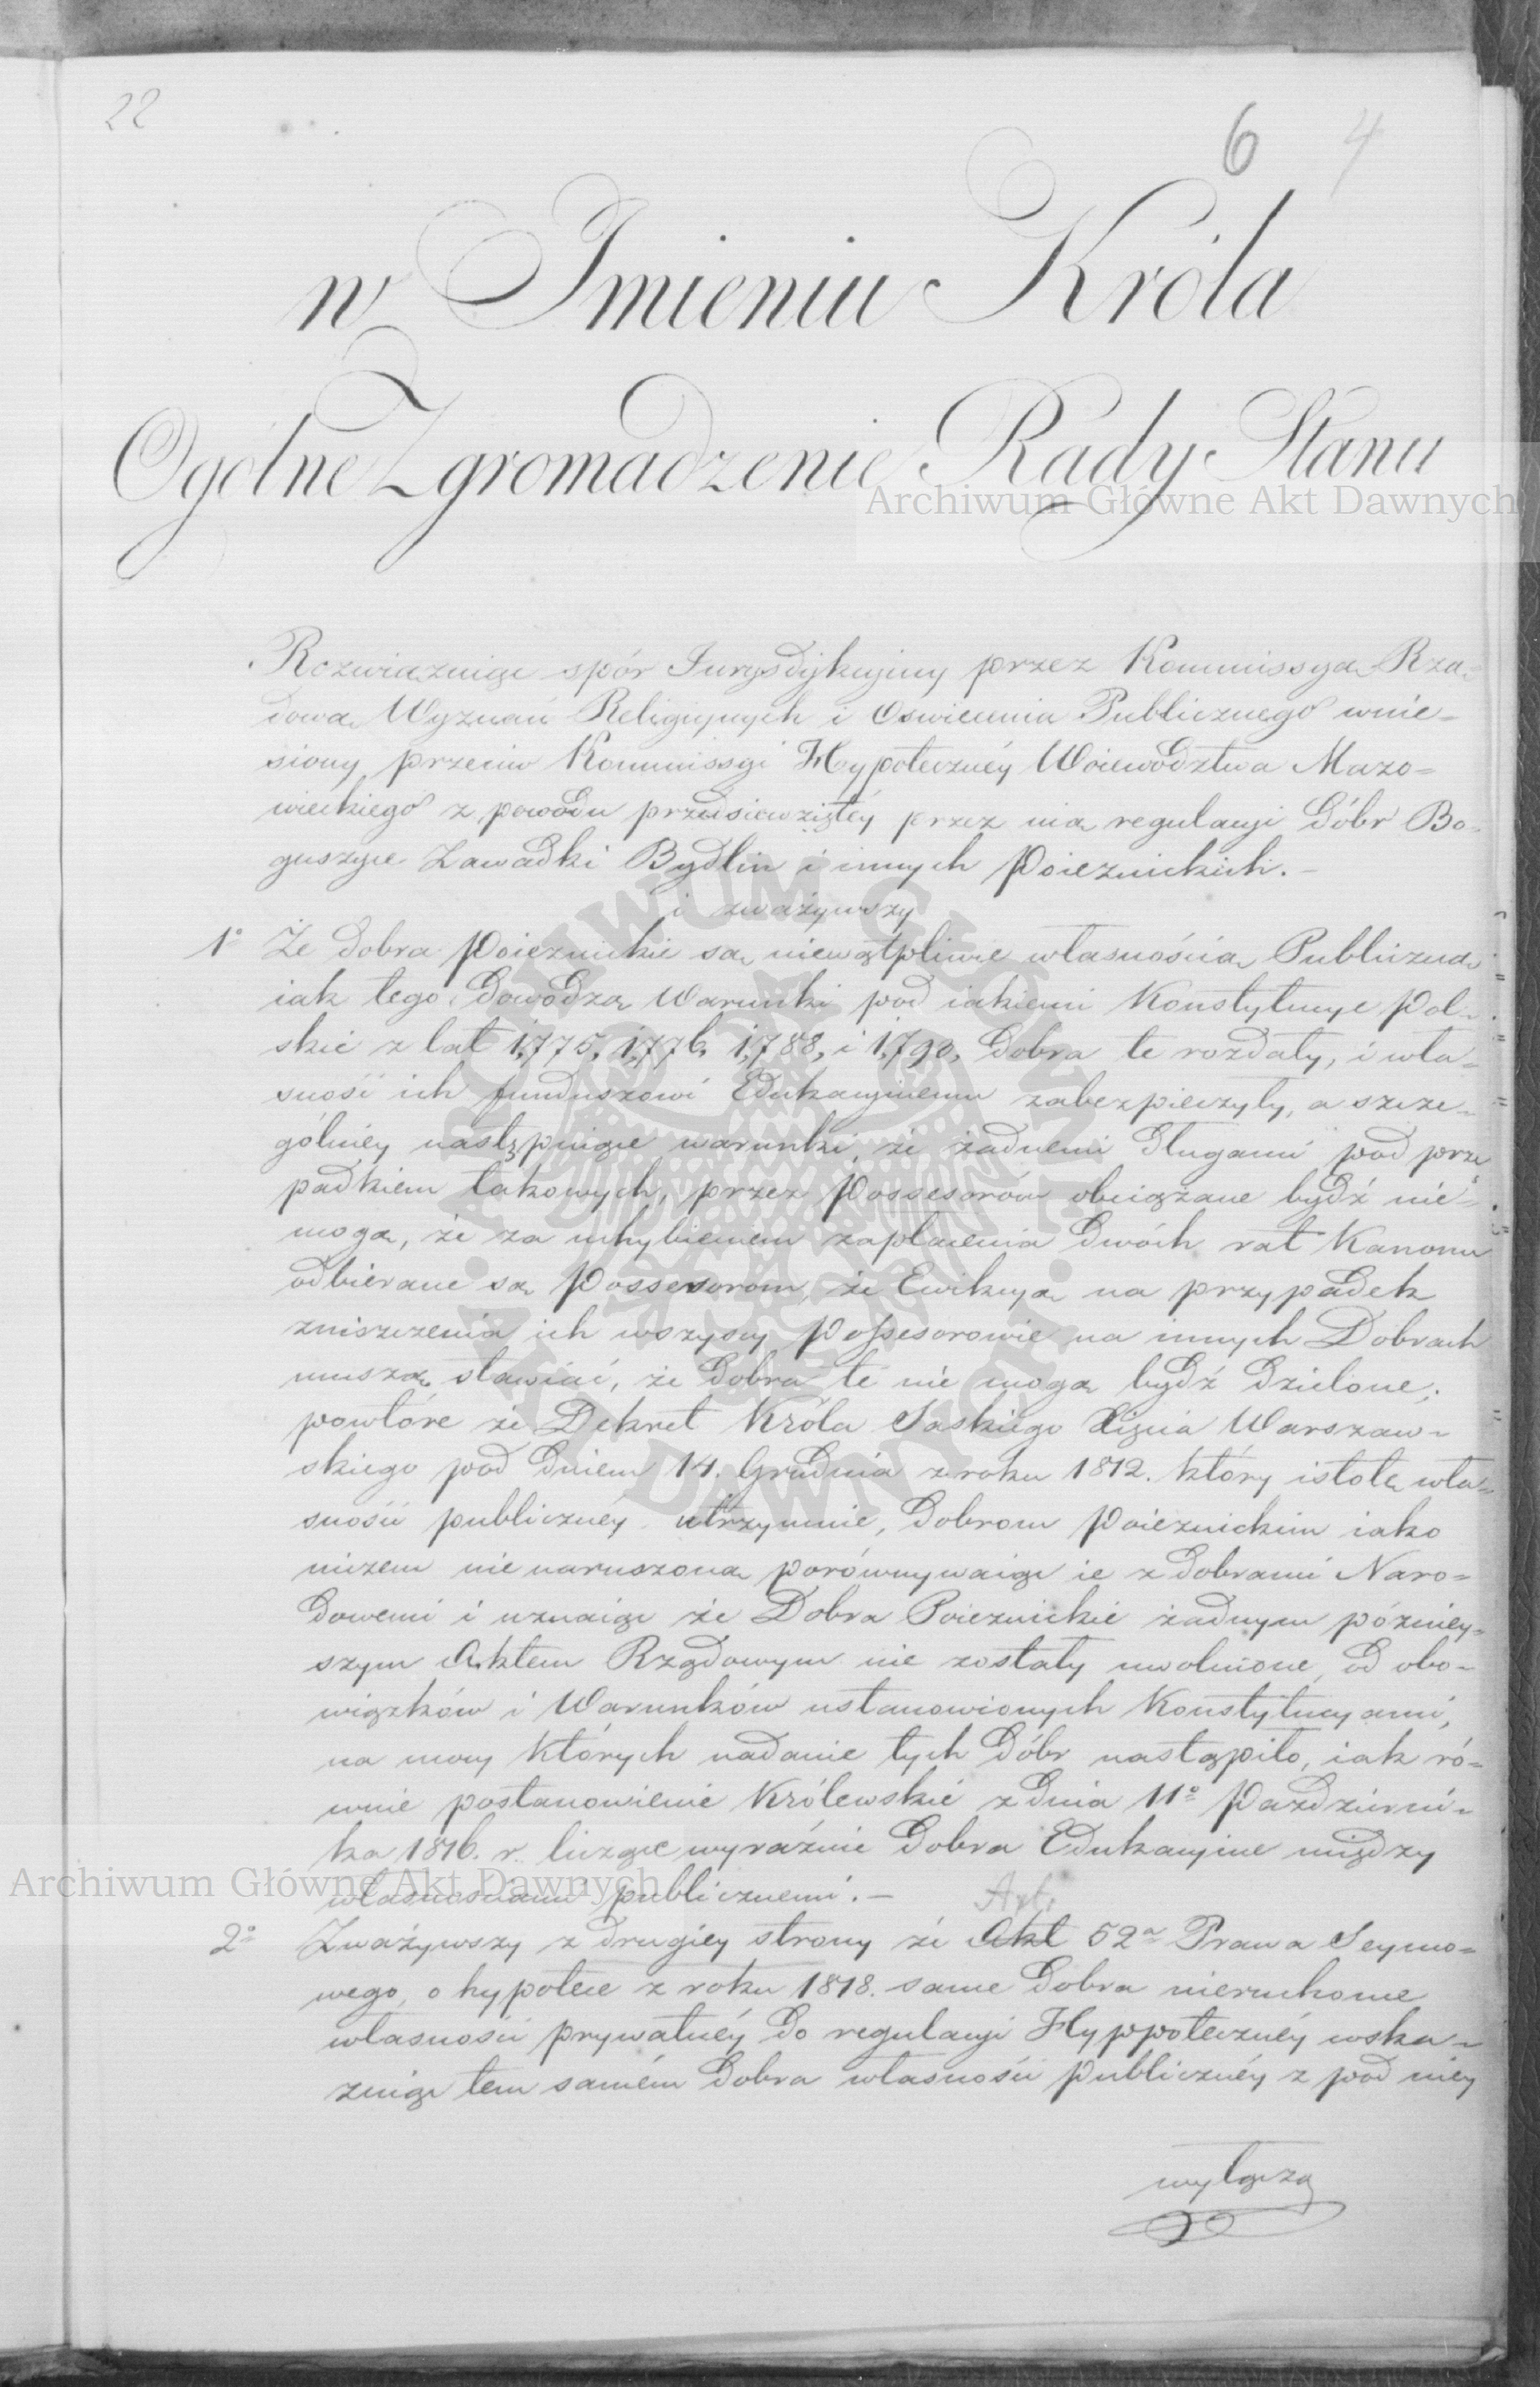 22
6 4
w Imieniu Króla
Ogólne Zgromadzenie Rady Stanu
Archiwum Główne Akt Dawnych
Rozwiązuiąc spór Jurysdykcyiny przez Kommissyą Rzą-
dową Wyznań Religiynych i Oswiecenia Publicznego wnie-
siony przeciw Kommissyi Hypoteczney Woiewództwa Mazo-
wieckiego z powodu przedsięwziętéy przez nią regulacyi Dóbr Bo-
guszyce Zawadki Bydlin i innych Poiezuickich.-
i zważywszy
1° Że dobra Poiezuickie są niewątpliwie własnością Publiczną
iak tego dowodzą Warunki pod iakiemi Konstytucye Pol-
skie z lat 1775, 1776, 1788, i 1790, dobra te rozdały, i wła-
sność ich funduszowi Edukacyinemu zabezpieczyły, a szcze-
gólniey następuiące warunki, że żadnemi długami pod prze
padkiem takowych, przez Possesorów obciążane bydź nie-
mogą, że za uchybieniem zapłacenia dwóch rat Kanonu
odbierane są Possesorom, że Ewikcyą na przypadek
zniszczenia ich wszyscy Possesorowie na innych Dobrach
muszą stawiać, że dobra te nie mogą bydź dzielone;
powtóre że Dekret Króla Saskiego Xięcia Warszaw-
skiego pod dniem 14. Grudnia z roku 1812. który istotę wła-
sności publiczney utrzymuie, dobrom Poiezuickim iako
niczem nie naruszoną porównywaiąc ie z dobrami Naro-
dowemi i uznaiąc że Dobra Poiezuickie żadnym pózniey-
szym Aktem Rządowym nie zostały uwolnione od obo-
wiązków i Warunków ustanowionych Konstytucyami,
na mocy których nadanie tych Dóbr nastąpiło, iak ró-
wnie postanowienie Królewskie z dnia 11° Pazdzierni-
ka 1816. r. licząc wyraźnie dobra Edukacyine między
Archiwum Główne Akt Dawnych
własnosciami publicznemi.-
Art.
2° Zważywszy z drugiey strony że Akt 52ª Prawa Seymo-
wego, o hypotece z roku 1818. same dobra nieruchome
własności prywatnéy do regulacyi Hyppoteczney wska-
zuiąc tem samém dobra własności publicznéy z pod niey
Archiwum Główne Akt Dawnych
wyłącza